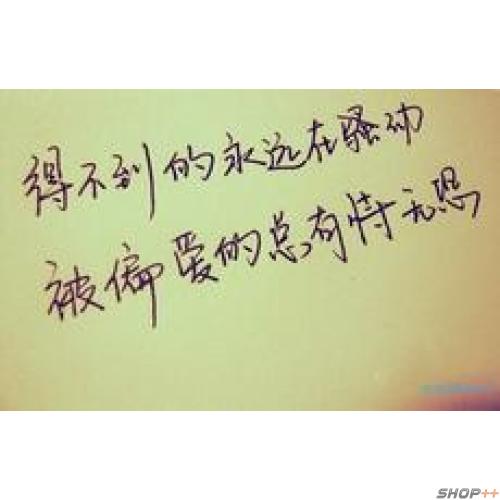 得不到的永远在骚动
被偏爱的总有恃无恐
SHOP++